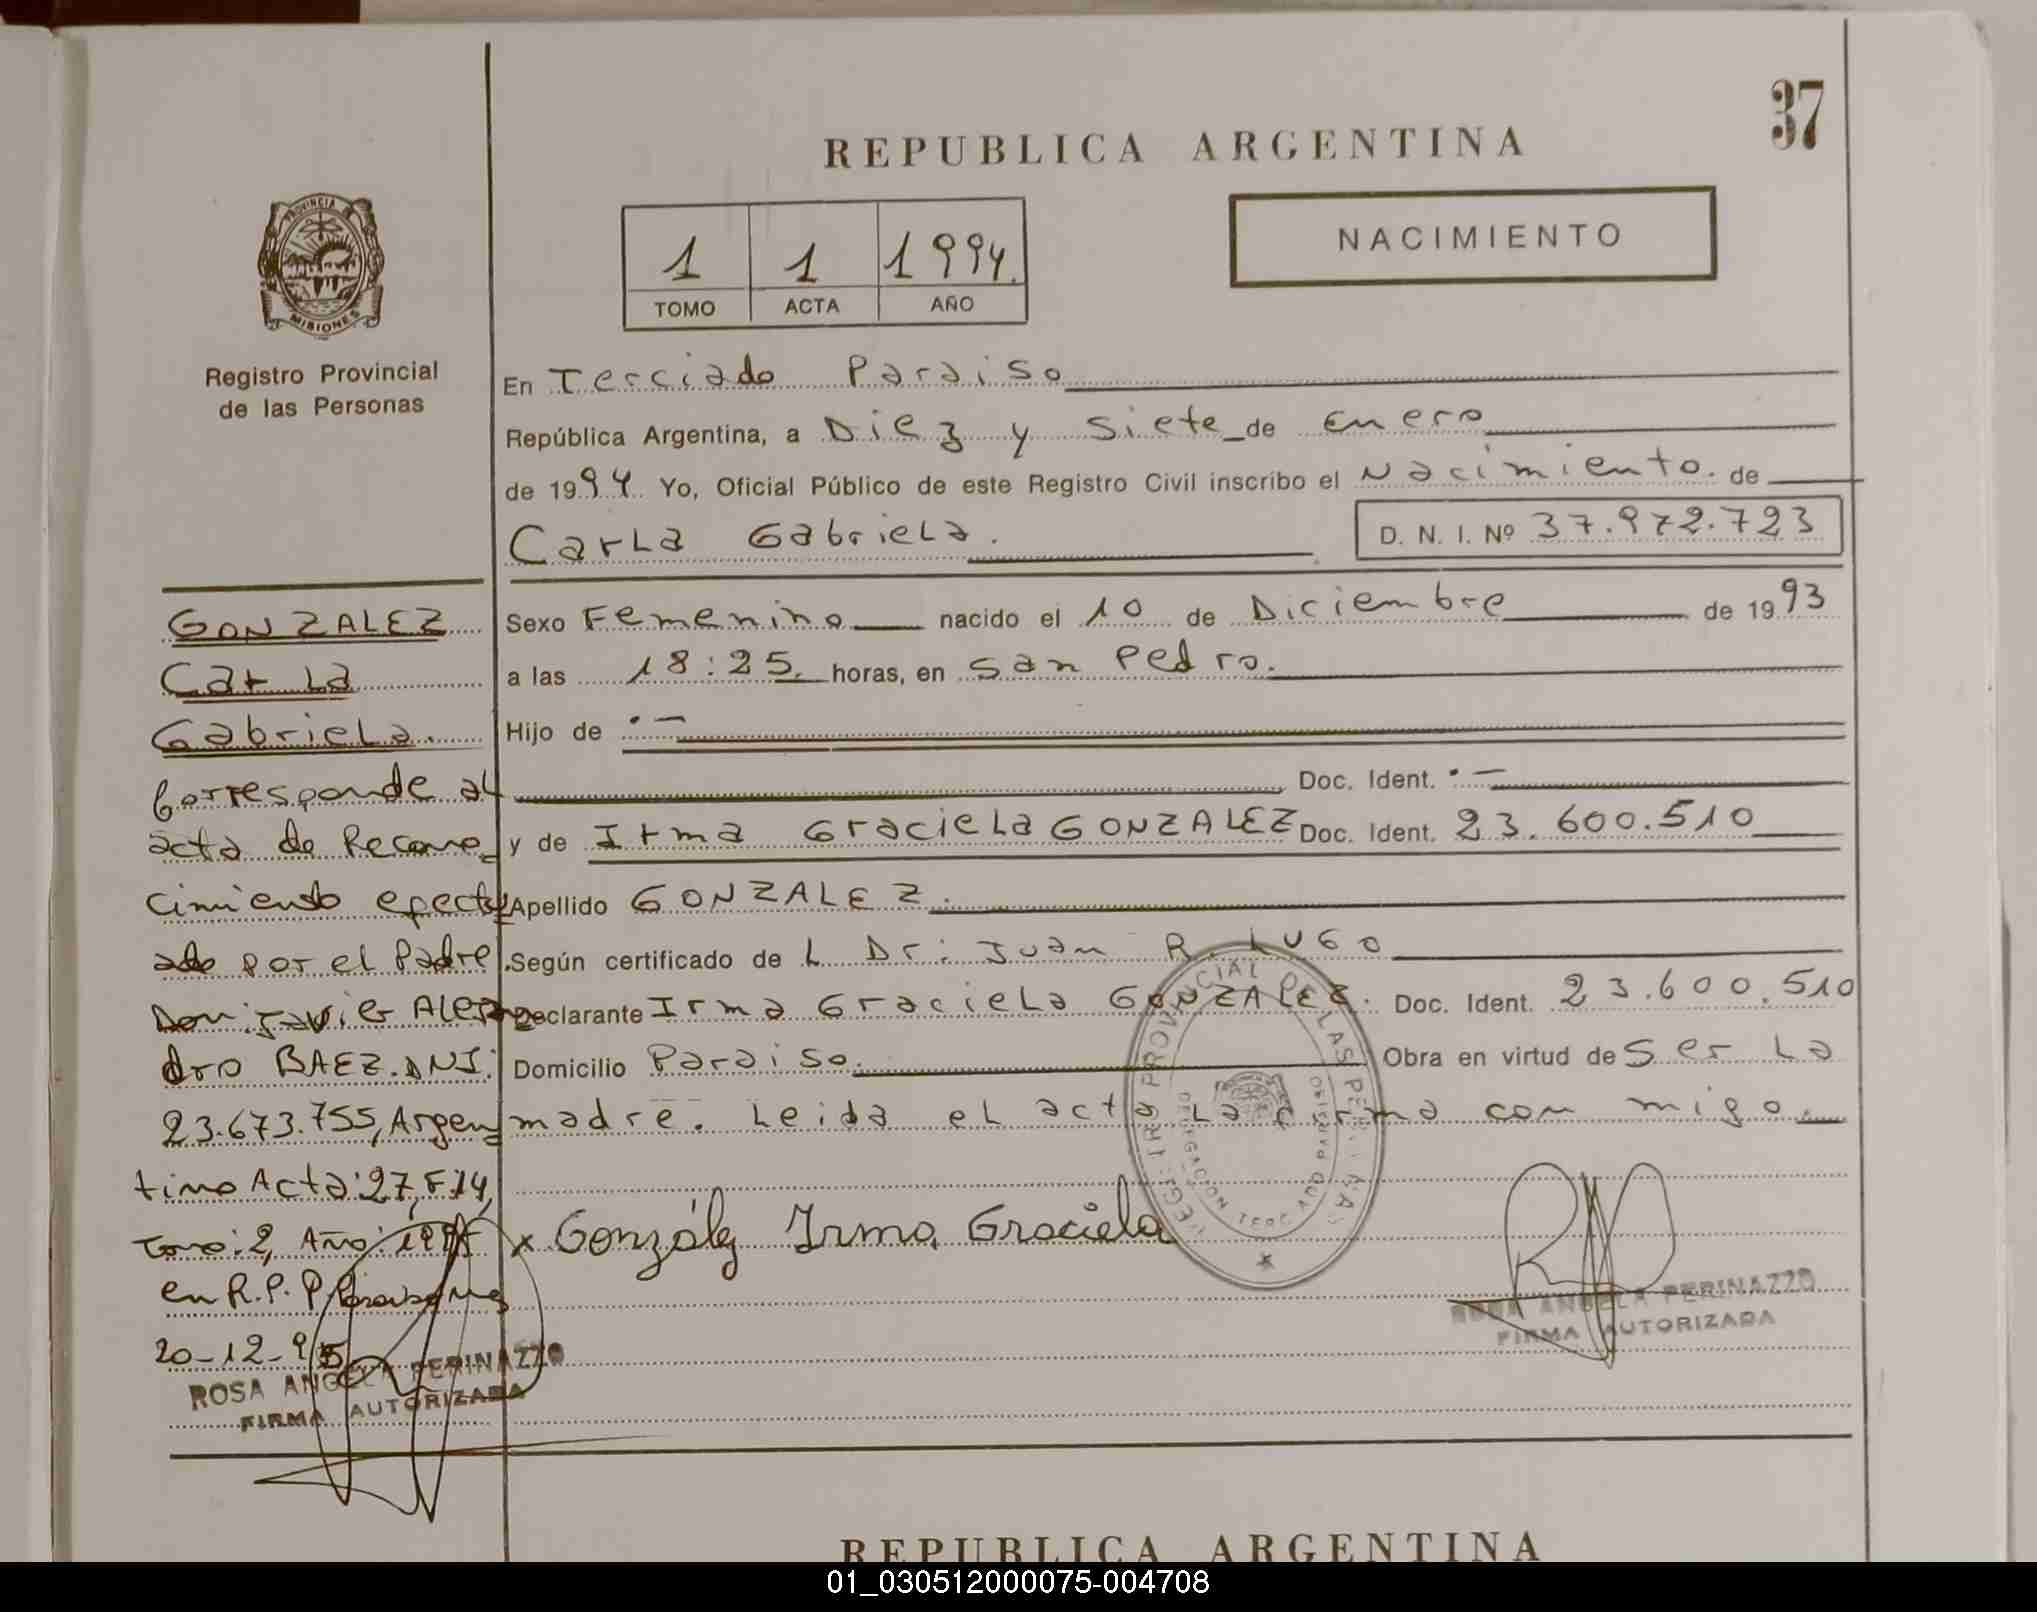 37
REPUBLICA ARGENTINA
PROVINCIA DE
MISIONES
Registro Provincial
de las Personas
1 1 1994.
TOMO ACTA AÑO
NACIMIENTO
En Terciado Paraiso
República Argentina, a Diez y Siete de Enero
de 1994 Yo, Oficial Público de este Registro Civil inscribo el Nacimiento. de
Carla Gabriela.
D. N. I. Nº 37.972.723
Sexo Femenino nacido el 10 de Diciembre de 1993
a las 18:25. horas, en San Pedro.
Hijo de .—
Doc. Ident. .—
y de Irma Graciela GONZALEZ Doc. Ident. 23.600.510
Apellido GONZALEZ.
Según certificado de L Dr: Juan R. LUGO
Declarante Irma Graciela GONZALEZ. Doc. Ident. 23.600.510
Domicilio Paraiso. Obra en virtud de Ser La
madre. Leida el acta La firma con migo.
x González Irma Graciela
ROSA ANGELA PERINAZZO
FIRMA AUTORIZADA
GONZALEZ
Carla
Gabriela.
Corresponde al
acta de Recono_
cimiento efectu
ado por el Padre.
Don: Javier Alejan
dro BAEZ. DNI:
23.673.755, Argen_
tino Acta: 27, F:14,
Tomo: 2, Año: 1995
en R.P.P.
20-12-95
ROSA ANGELA PERINAZZO
FIRMA AUTORIZADA
REG. PROVINCIAL DE LAS PERSONAS
DELEGACION TERCIADO PARAISO
REPUBLICA ARGENTINA
01_030512000075-004708